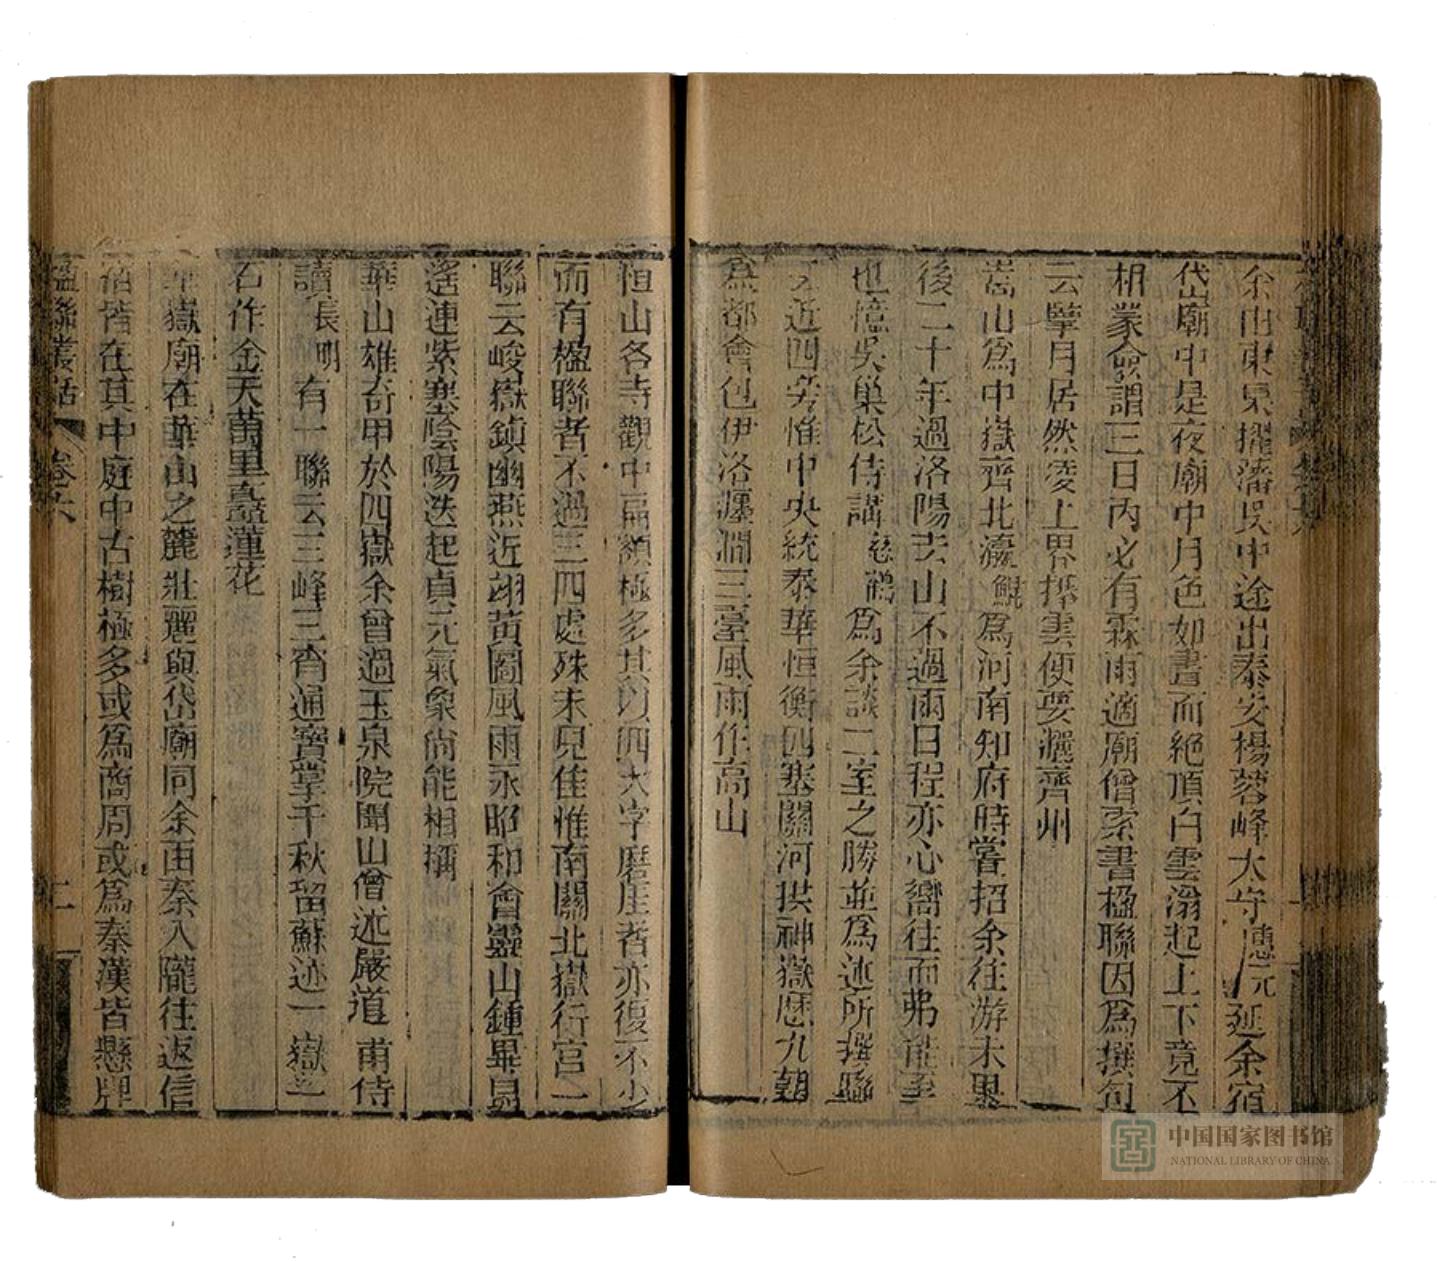 余由東臬擢藩吳中途出泰安楊蓉峰太守惠元延余宿
岱廟中是夜廟中月色如晝而絶頂白雲滃起上下竟不
相蒙僉謂三日內必有霖雨適廟僧索書楹聯因爲撰句
云擘月居然凌上界搽雲便要灑齊州
嵩山爲中嶽齊北瀛鯤爲河南知府時嘗招余往游未果
後二十年過洛陽去山不過兩日程亦心嚮往而弗能至
也憶吳巢松侍講慈鶴爲余談二室之勝並爲述所撰聯
云近四旁惟中央統泰華恒衡四塞關河拱神嶽歷九朝
爲都會包伊洛瀍澗三臺風雨作高山
恒山各寺觀中匾額極多其以四大字磨崖者亦復不少
而有楹聯者不過三四處殊未見佳惟南關北嶽行宫一
聯云峻嶽鎮幽燕近翊黃圖風雨永昭和會靈山鍾畢昴
遙連紫塞陰陽迭起貞元氣象尚能相稱
華山雄奇甲於四嶽余曾過玉泉院聞山僧述嚴道甫侍
讀長明有一聯云三峰三霄通寶掌千秋留蘇迹一嶽之
石作金天萬里矗蓮花
華嶽廟在華山之麓壯麗與岱廟同余由秦入隴往返信
宿皆在其中庭中古樹極多或爲商周或爲秦漢皆懸牌
楹聯叢話 卷六 二
中国国家图书馆
NATIONAL LIBRARY OF CHINA